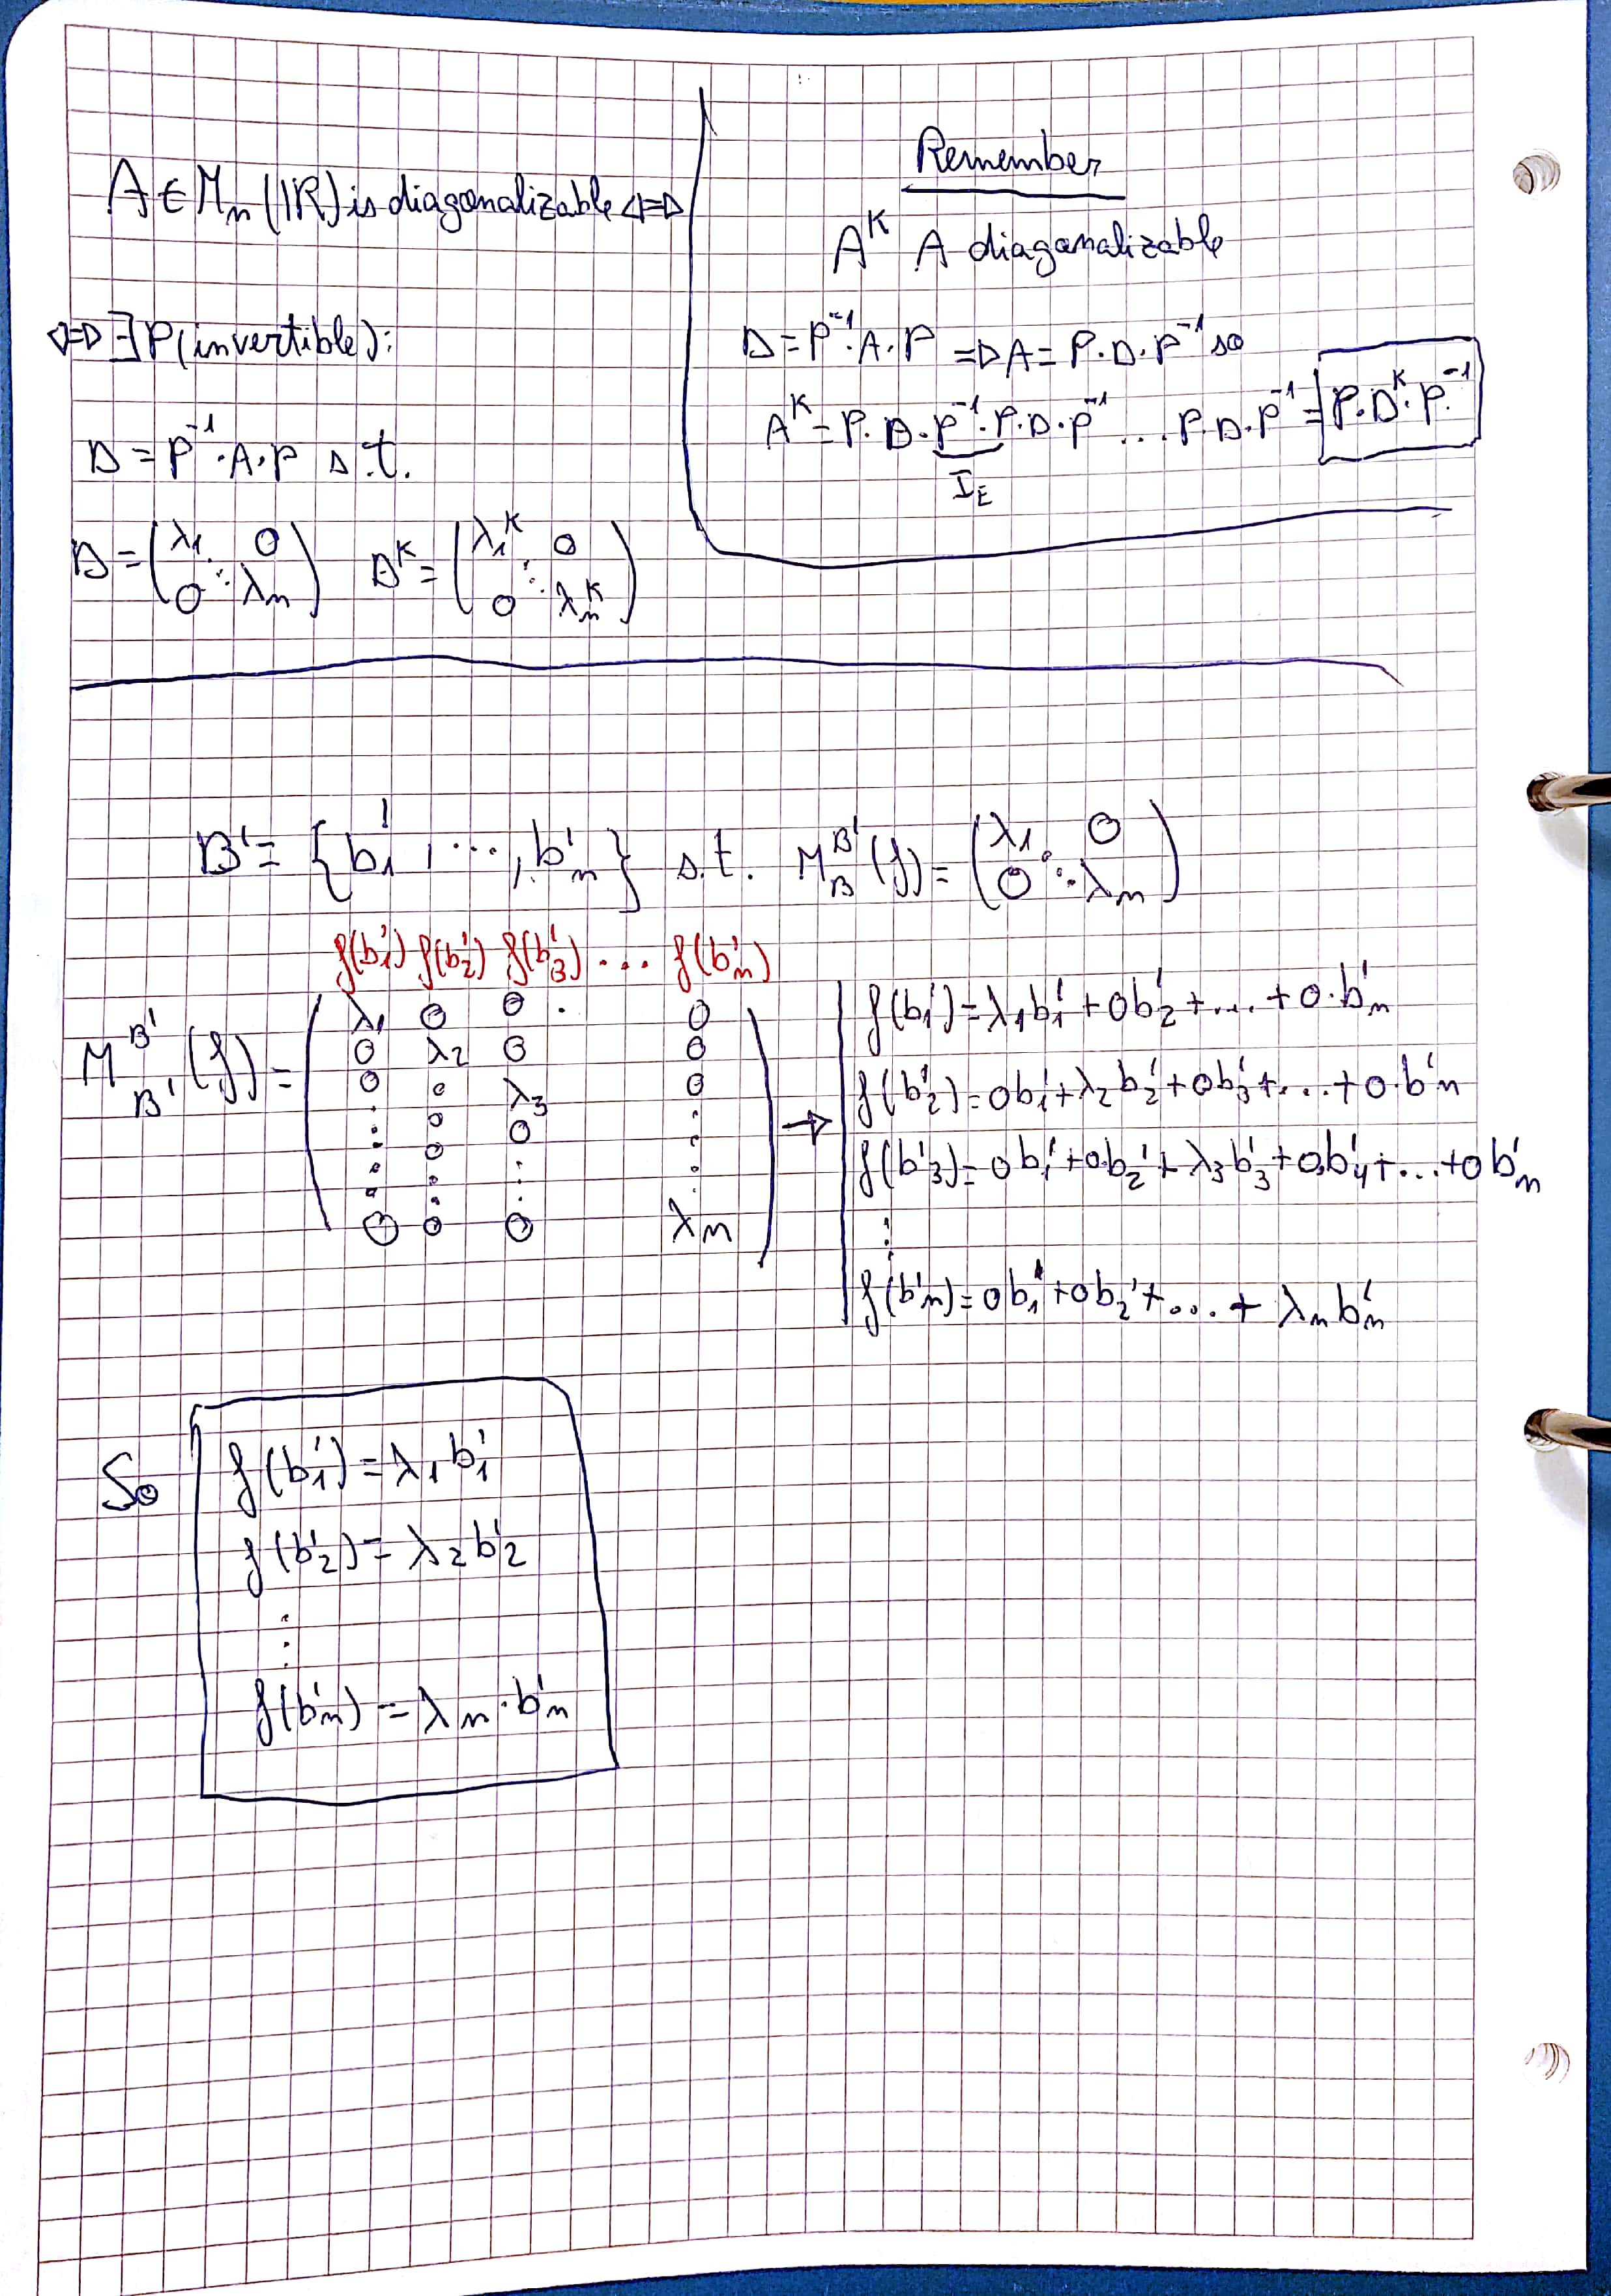 A ∈ M_n (ℝ) is diagonalizable ⇔
⇔ ∃ P (invertible):
D = P^-1 · A · P s.t.
D = (λ1 0 ⋱ 0 λn) D^K = (λ1^K 0 ⋱ 0 λn^K)
Remember
A^K A diagonalizable
D = P^-1 · A · P ⇒ A = P · D · P^-1 so
A^K = P · D · P^-1 · P · D · P^-1 ... P · D · P^-1 = P · D^K · P^-1
I_E
B' = {b'1, ..., b'n} s.t. M_B^B' (f) = (λ1 0 ⋱ 0 λn)
f(b'1) f(b'2) f(b'3) ... f(b'n)
M_B'^B' (f) =
λ1 0 0 . 0
0 λ2 0 0
0 0 λ3 0
. 0 0 .
. 0 . .
0 0 0 λn
→
f(b'1) = λ1b'1 + 0b'2 + ... + 0·b'n
f(b'2) = 0b'1 + λ2b'2 + 0b'3 + ... + 0·b'n
f(b'3) = 0b'1 + 0·b'2 + λ3b'3 + 0b'4 + ... + 0b'n
⋮
f(b'n) = 0b'1 + 0b'2 + ... + λnb'n
So
f(b'1) = λ1b'1
f(b'2) = λ2b'2
⋮
f(b'n) = λn·b'n